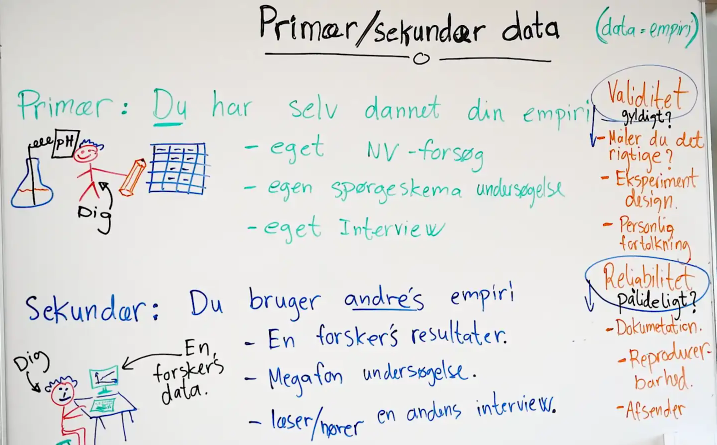 Primær/sekundær data
(data = empiri)
Primær: Du har selv dannet din empiri
- eget NV-forsøg
- egen spørgeskema undersøgelse
- eget Interview
pH
Dig
Sekundær: Du bruger andre's empiri
- En forsker's resultater.
- Megafon undersøgelse.
- læser/hører en andens interview.
Dig
En
forsker's
data.
Validitet
gyldigt?
- Måler du det
rigtige?
- Eksperiment
design.
- Personlig
fortolkning
Reliabilitet
pålideligt?
- Dokumetation.
- Reproducer-
barhed.
- Afsender